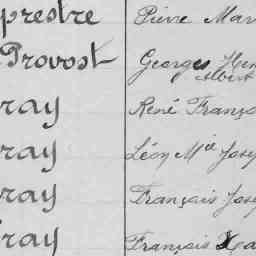 prestre Pierre Mar
Provost Georges Hen
Albert
ray René Franço
ray Léon Mie Josep
ray François Jose
ray François Xa